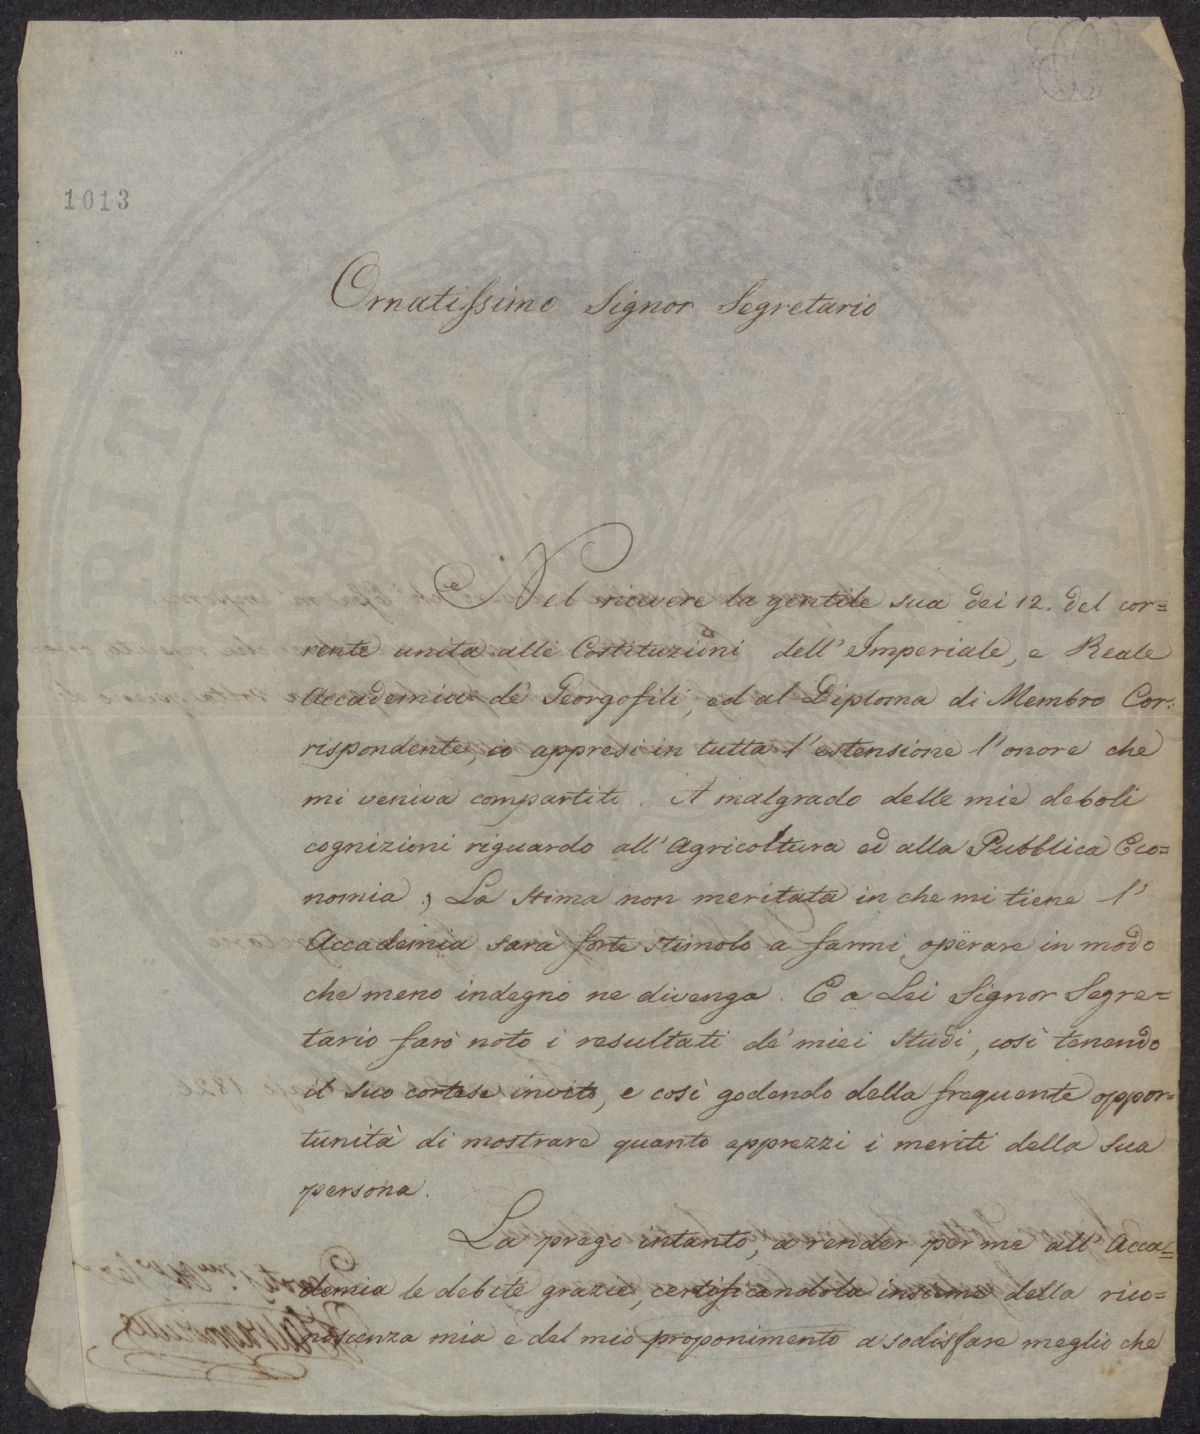 1013
Ornatissimo Signor Segretario
Nel ricevere la gentile sua dei 12. del cor=
rente unita alle Costituzioni dell' Imperiale, e Reale
Accademia de' Georgofili, ed al Diploma di Membro Cor=
rispondente, io appresi in tutta l'estensione l'onore che
mi veniva compartito. A malgrado delle mie deboli
cognizioni riguardo all'Agricoltura ed alla Pubblica Eco=
nomia, La stima non meritata in che mi tiene l'
Accademia sarà forte stimolo a farmi operare in modo
che meno indegno ne divenga. E a Lei Signor Segre=
tario farò noto i resultati de' miei studi, così tenendo
il suo cortese invito, e così godendo della frequente oppor=
tunità di mostrare quanto apprezzi i meriti della sua
persona.
La prego intanto, a render per me all' Acca=
demia le debite grazie, certificandola insieme della rico=
noscenza mia e del mio proponimento a sodisfare meglio che